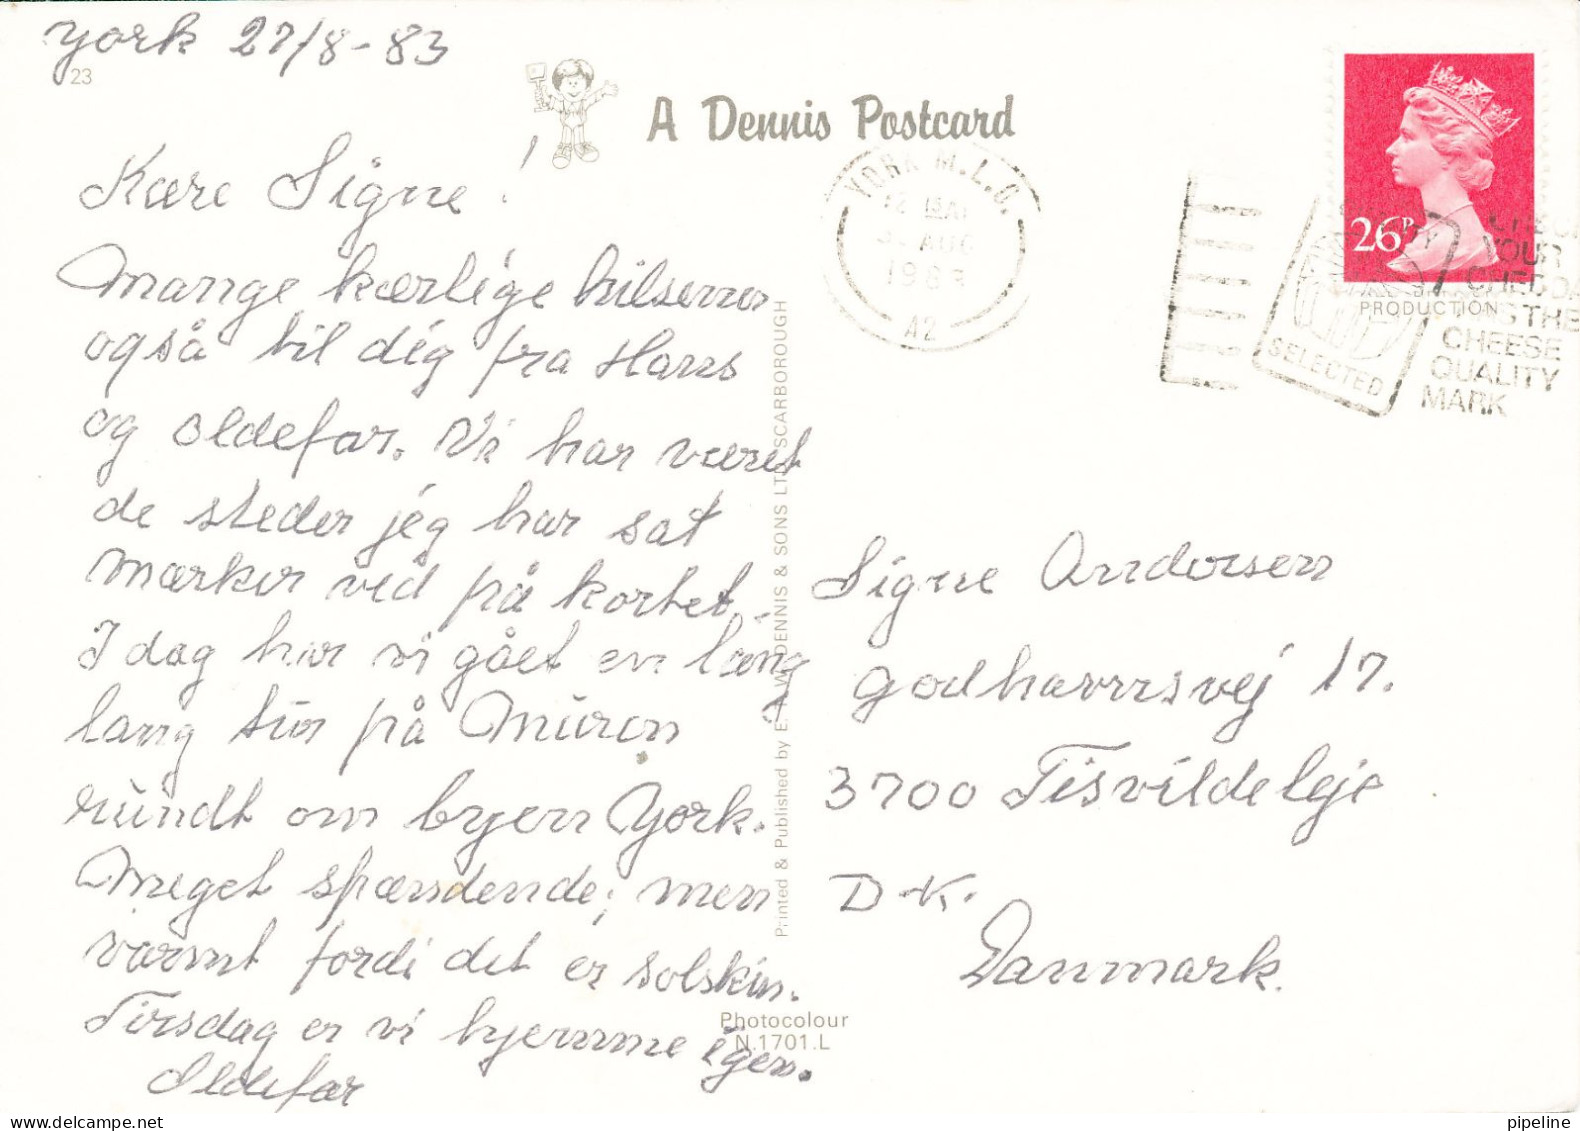 York 27/8-83
23
A Dennis Postcard
Kære Signe!
Mange kærlige hilsener
også til dig fra Hans
og oldefar. Vi har været
de steder jeg har sat
mærker ved på kortet.
I dag har vi gået en lang
lang tur på Muren
rundt om byen York.
Meget spændende, men
varmt fordi det er solskin.
Tirsdag er vi hjemme igen.
Oldefar
Printed & Published by E. T. W. DENNIS & SONS LTD. SCARBOROUGH
Photocolour
N.1701.L
YORK M.L.O.
AUG
1983
A2
26P
PRODUCTION
SELECTED
YOUR
CHEDDA
THE
CHEESE
QUALITY
MARK
Signe Andersen
Godhavnsvej 17.
3700 Tisvildeleje
DK.
Danmark.
pipeline